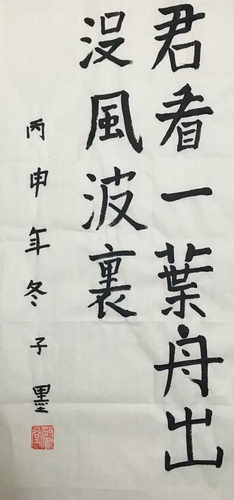 君看一葉舟出
没風波裏
丙申年冬子墨